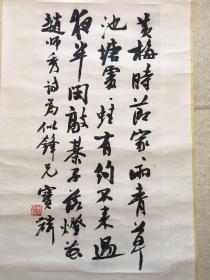 黄梅時節家〻雨青草
池塘處〻蛙有約不来過
夜半閑敲棊子落燈花
趙師秀詩為似鋒兄 寶